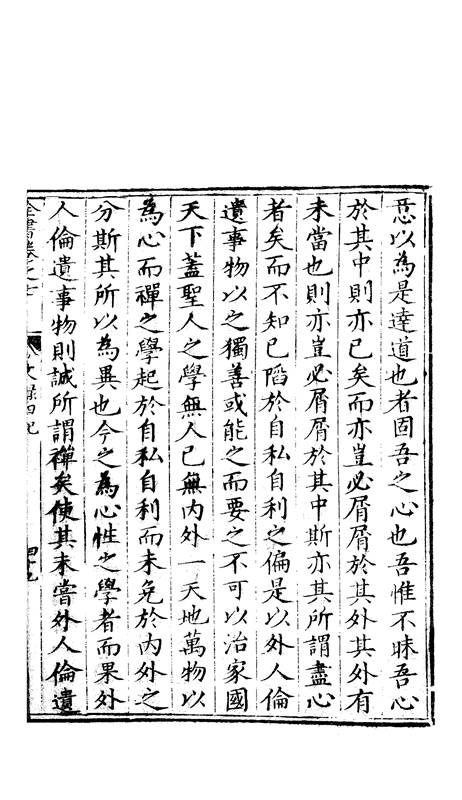 恧以為是達道也者固吾之心也吾惟不昧吾心
於其中則亦已矣而亦豈必屑屑於其外其外有
未當也則亦豈必屑屑於其中斯亦其所謂盡心
者矣而不知已陷於自私自利之偏是以外人倫
遺事物以之獨善或能之而要之不可以治家國
天下蓋聖人之學無人己無內外一天地萬物以
為心而禪之學起於自私自利而未免於內外之
分斯其所以為異也今之為心性之學者而果外
人倫遺事物則誠所謂禪矣使其未嘗外人倫遺
全書卷之七 文錄四 記 四十九